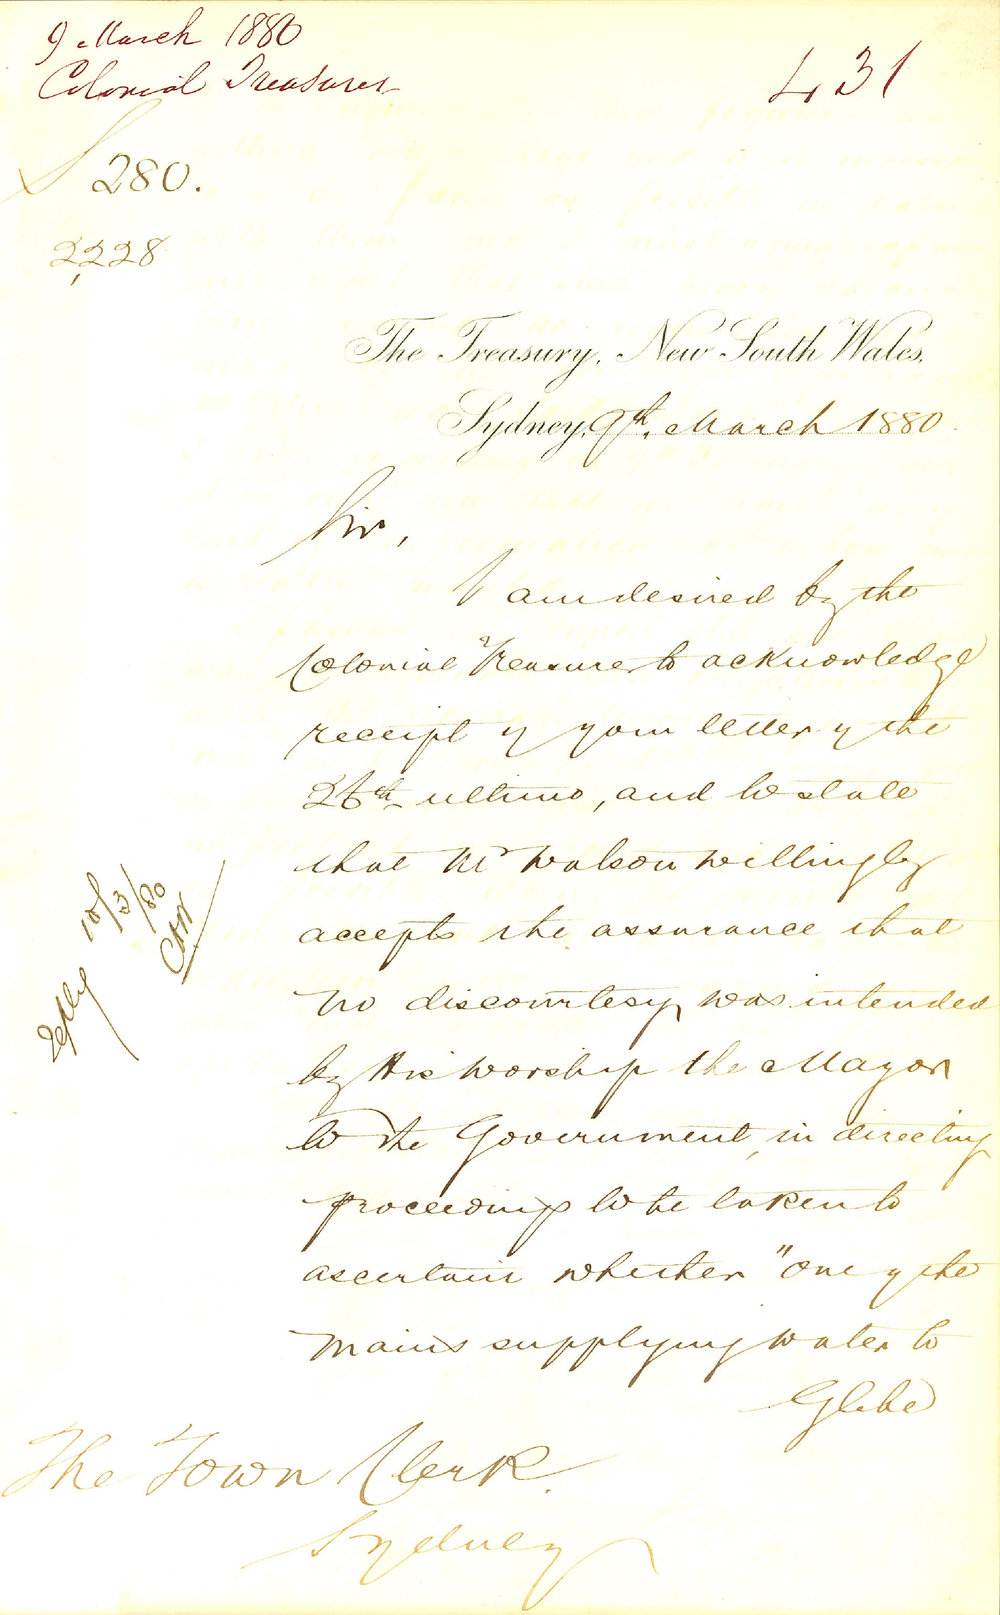 9 March 1880
Colonial Treasurer
431
280.
2228
The Treasury, New South Wales,
Sydney, 9th. March 1880.
Sir,
I am desired by the
Colonial Treasurer to acknowledge
receipt of your letter of the
26th ultimo, and to state
that Mr Watson willingly
accepts the assurance that
no discourtesy was intended
by His Worship the Mayor
to the Government, in directing
proceedings to be taken to
ascertain whether "one of the
mains supplying water to
Glebe
10/3/80
The Town Clerk.
Sydney